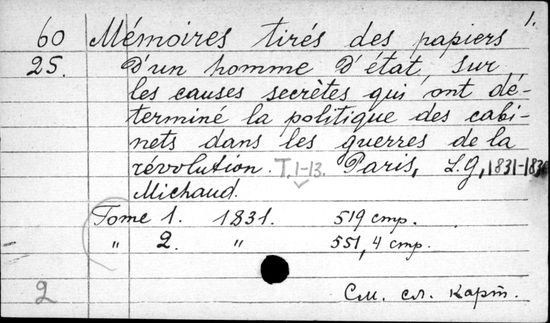 1.
60 Mémoires tirés des papiers
25. D'un homme D'état, sur
les causes secrètes qui ont dé-
terminé la politique des cabi-
nets dans les guerres de la
révolution. T. 1-13. Paris, L. G, 1831-
Michaud.
Tome 1. 1831. 519 стр.
" 2. " 551, 4 стр.
2 См. сл. карт.